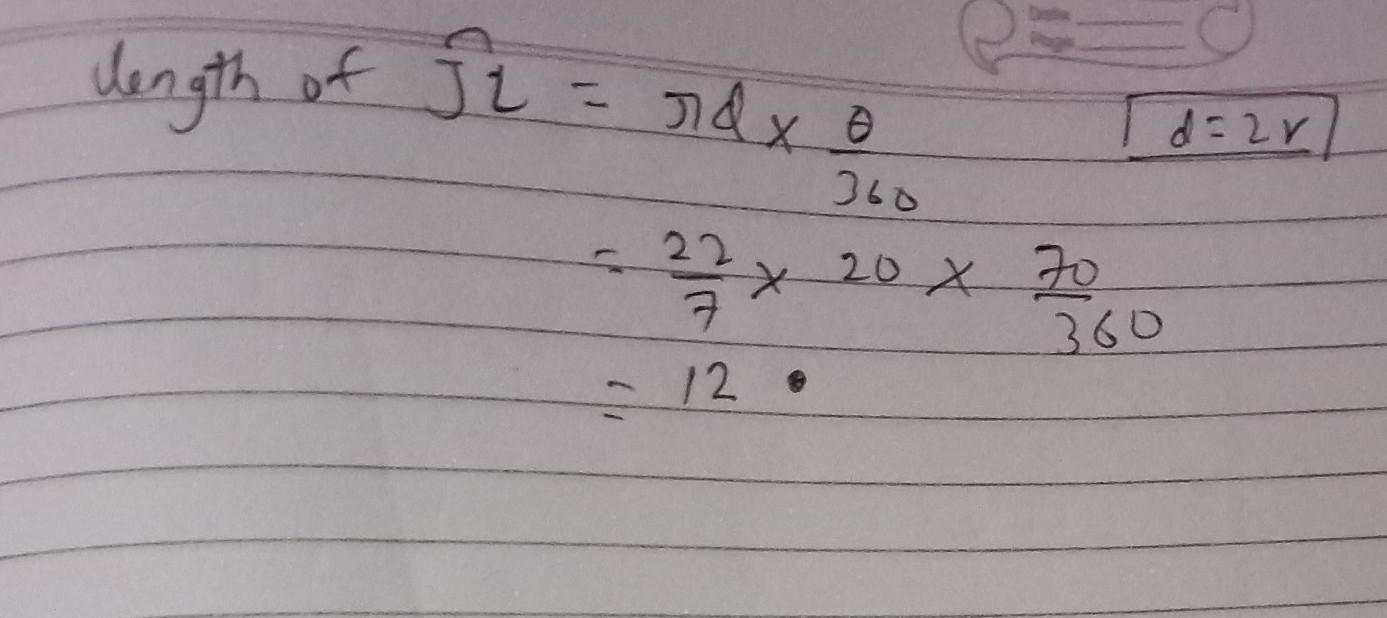 length of JL = πd × θ/360 d = 2r
= 22/7 × 20 × 70/360
= 12 •